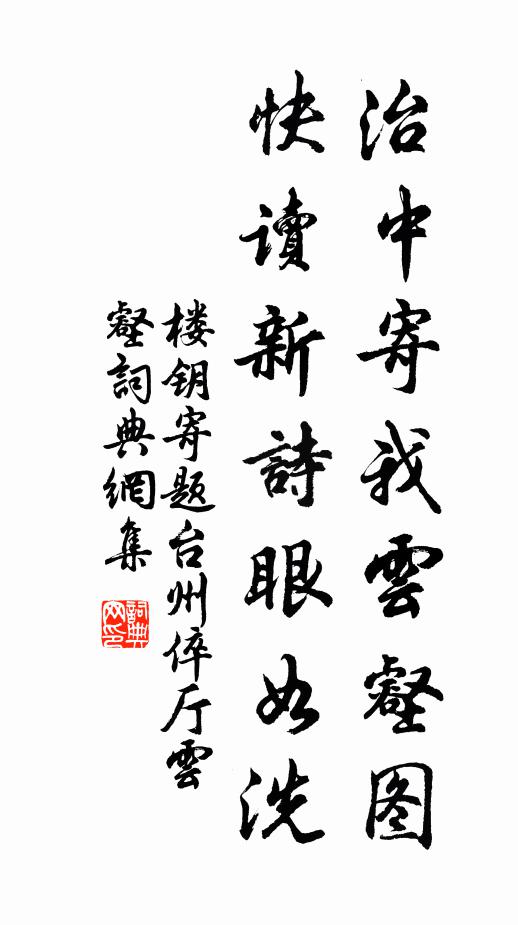 治中寄我雲壑图
快讀新詩眼如洗
楼钥寄题台州倅厅雲
壑詞典網集
詞典
网印